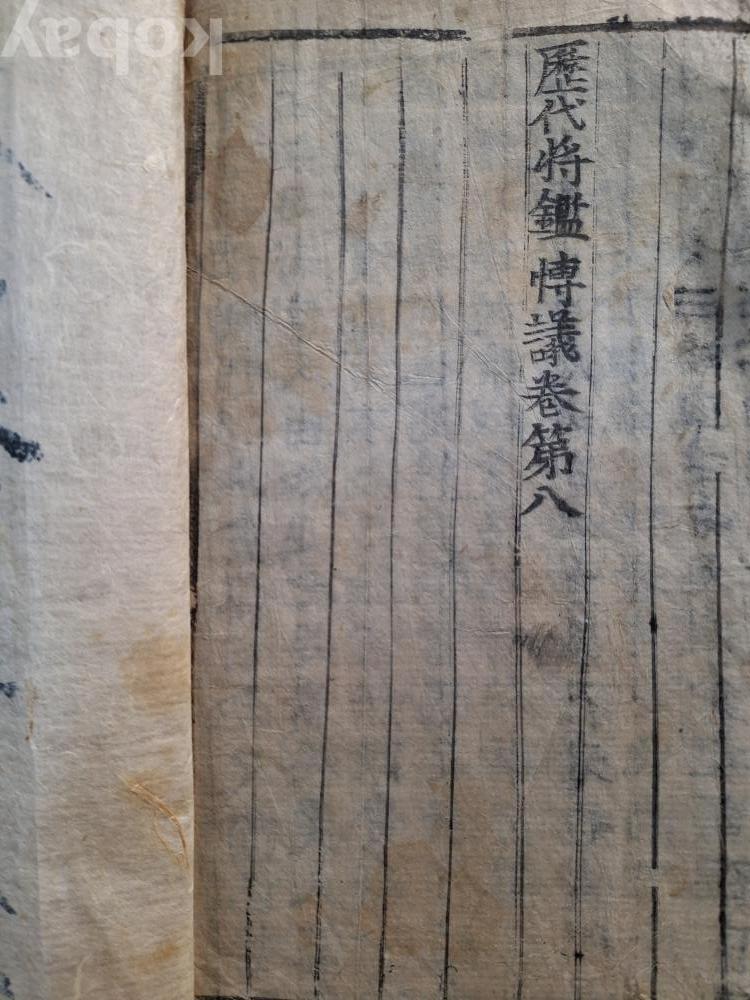 kobay
歷代将鑑愽議卷第八